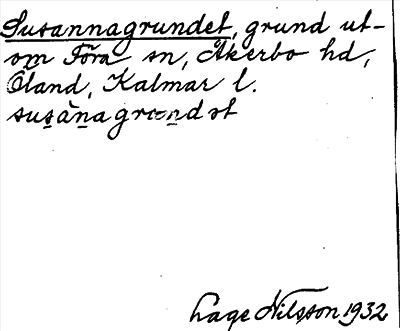 Susannagrundet, grund ut-
om Föra sn, Åkerbo hd,
Öland, Kalmar l.
susànagrundət
Lage Nilsson 1932